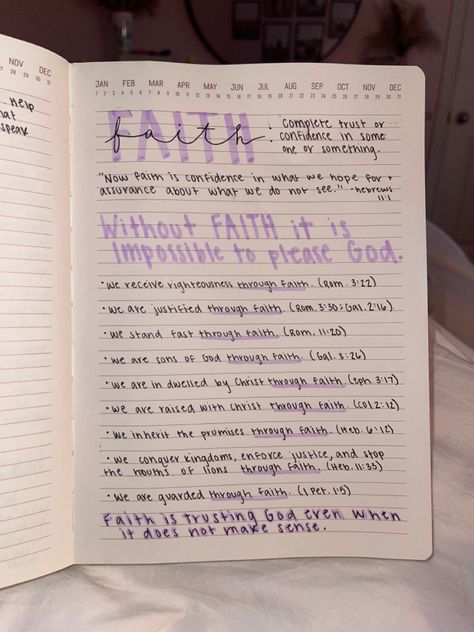 NOV DEC
. Help
hat
speak
JAN FEB MAR APR MAY JUN JUL AUG SEP OCT NOV DEC
FAITH
faith: Complete trust or
confidence in some
one or something.
"Now faith is confidence in what we hope for +
assurance about what we do not see." -hebrews
11:1
Without FAITH it is
impossible to please God.
• we receive righteousness through faith. (Rom. 3:22)
• we are justified through faith. (Rom. 3:30; Gal. 2:16)
• we stand fast through faith. (Rom. 11:20)
• we are sons of God through faith. (Gal. 3:26)
• we are in dwelled by Christ through faith. (Eph. 3:17)
• we are raised with Christ through faith. (Col 2:12)
• we inherit the promises through faith. (Heb. 6:12)
• we conquer kingdoms, enforce justice, and stop
the mouths of lions through faith. (Heb. 11:33)
• we are guarded through faith. (1 Pet. 1:5)
Faith is trusting God even when
it does not make sense.